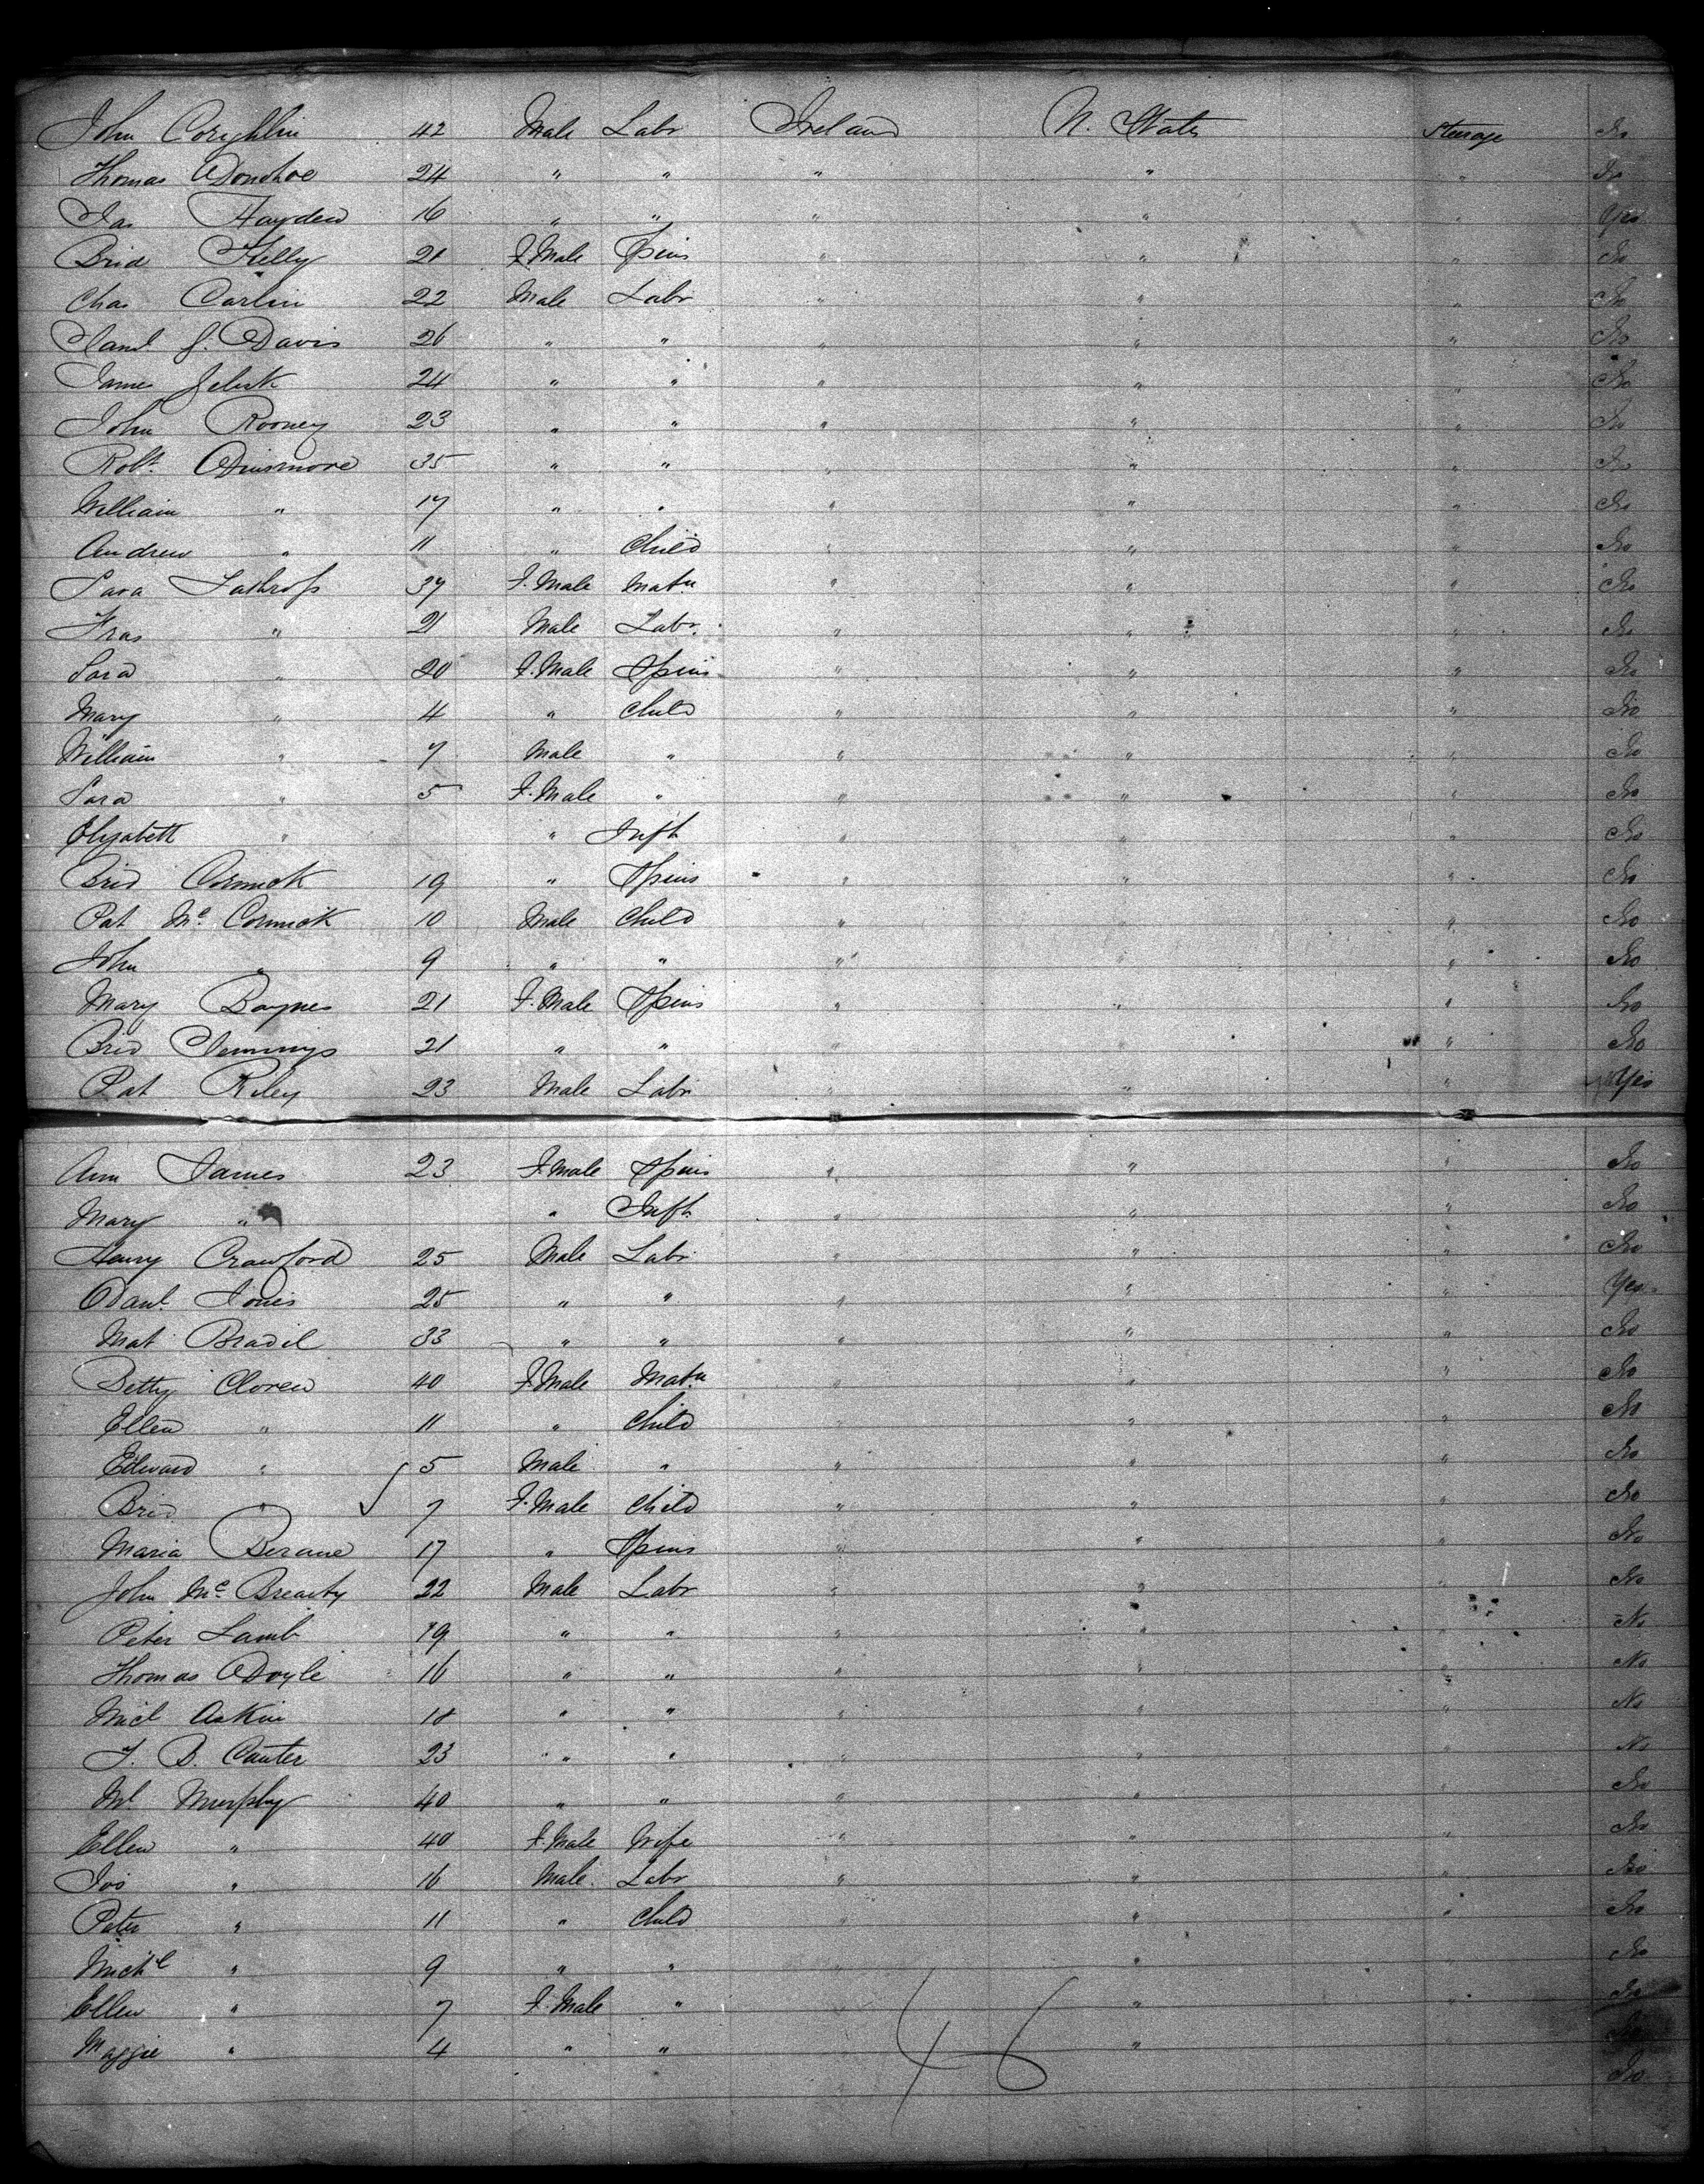 John Coughlin 42 Male Labr Ireland U. States Steerage No
Thomas Donohoe 24 " " " " " No
Jas Hayden 16 " " " " " Yes
Brid Kelly 21 F.Male Spins " " " No
Chas Carlin 22 Male Labr " " " No
Saml J. Davis 26 " " " " " No
James 24 " " " " " No
John Rooney 23 " " " " " No
Robt. Dinsmore 35 " " " " " No
William " 17 " " " " " No
Andrew " 11 " Child " " " No
Sara Lathrop 37 F.Male Matn " " " No
Fras " 21 Male Labr. " " " No
Sara " 20 F.Male Spins " " " No
Mary " 4 " Child " " " No
William " 7 Male " " " " No
Sara " 5 F.Male " " " " No
Elizabeth " " Inft " " " No
Brid Cormick 19 " Spins " " " No
Pat Mc Cormick 10 Male Child " " " No
John " 9 " " " " " No
Mary Baynes 21 F.Male Spins " " " No
Brid Clemmings 21 " " " " " No
Pat Riley 23 Male Labr " " " Yes
Ann James 23 F.Male Spins " " " No
Mary " " Inft " " " No
Henry Crawford 25 Male Labr " " " No
Danl. Jones 25 " " " " " Yes
Mat Bradil 33 " " " " " No
Betty Cloren 40 F.Male Matn " " " No
Ellen " 11 " Child " " " No
Edward " 5 Male " " " " No
Brid " 7 F.Male Child " " " No
Maria Berane 17 " Spins " " " No
John Mc Brearty 22 Male Labr " " " No
Peter Lamb 19 " " " " " No
Thomas Doyle 16 " " " " " No
Micl Askin 18 " " " " " No
T. B. Canter 23 " " " " " No
Ml Murphy 40 " " " " " No
Ellen " 40 F.Male Wife " " " No
Jos " 16 Male Labr " " " No
Peter " 11 " Child " " " No
Michl " 9 " " " " No
Ellen " 7 F.Male " " No
Maggie " 4 " " " No
No
46